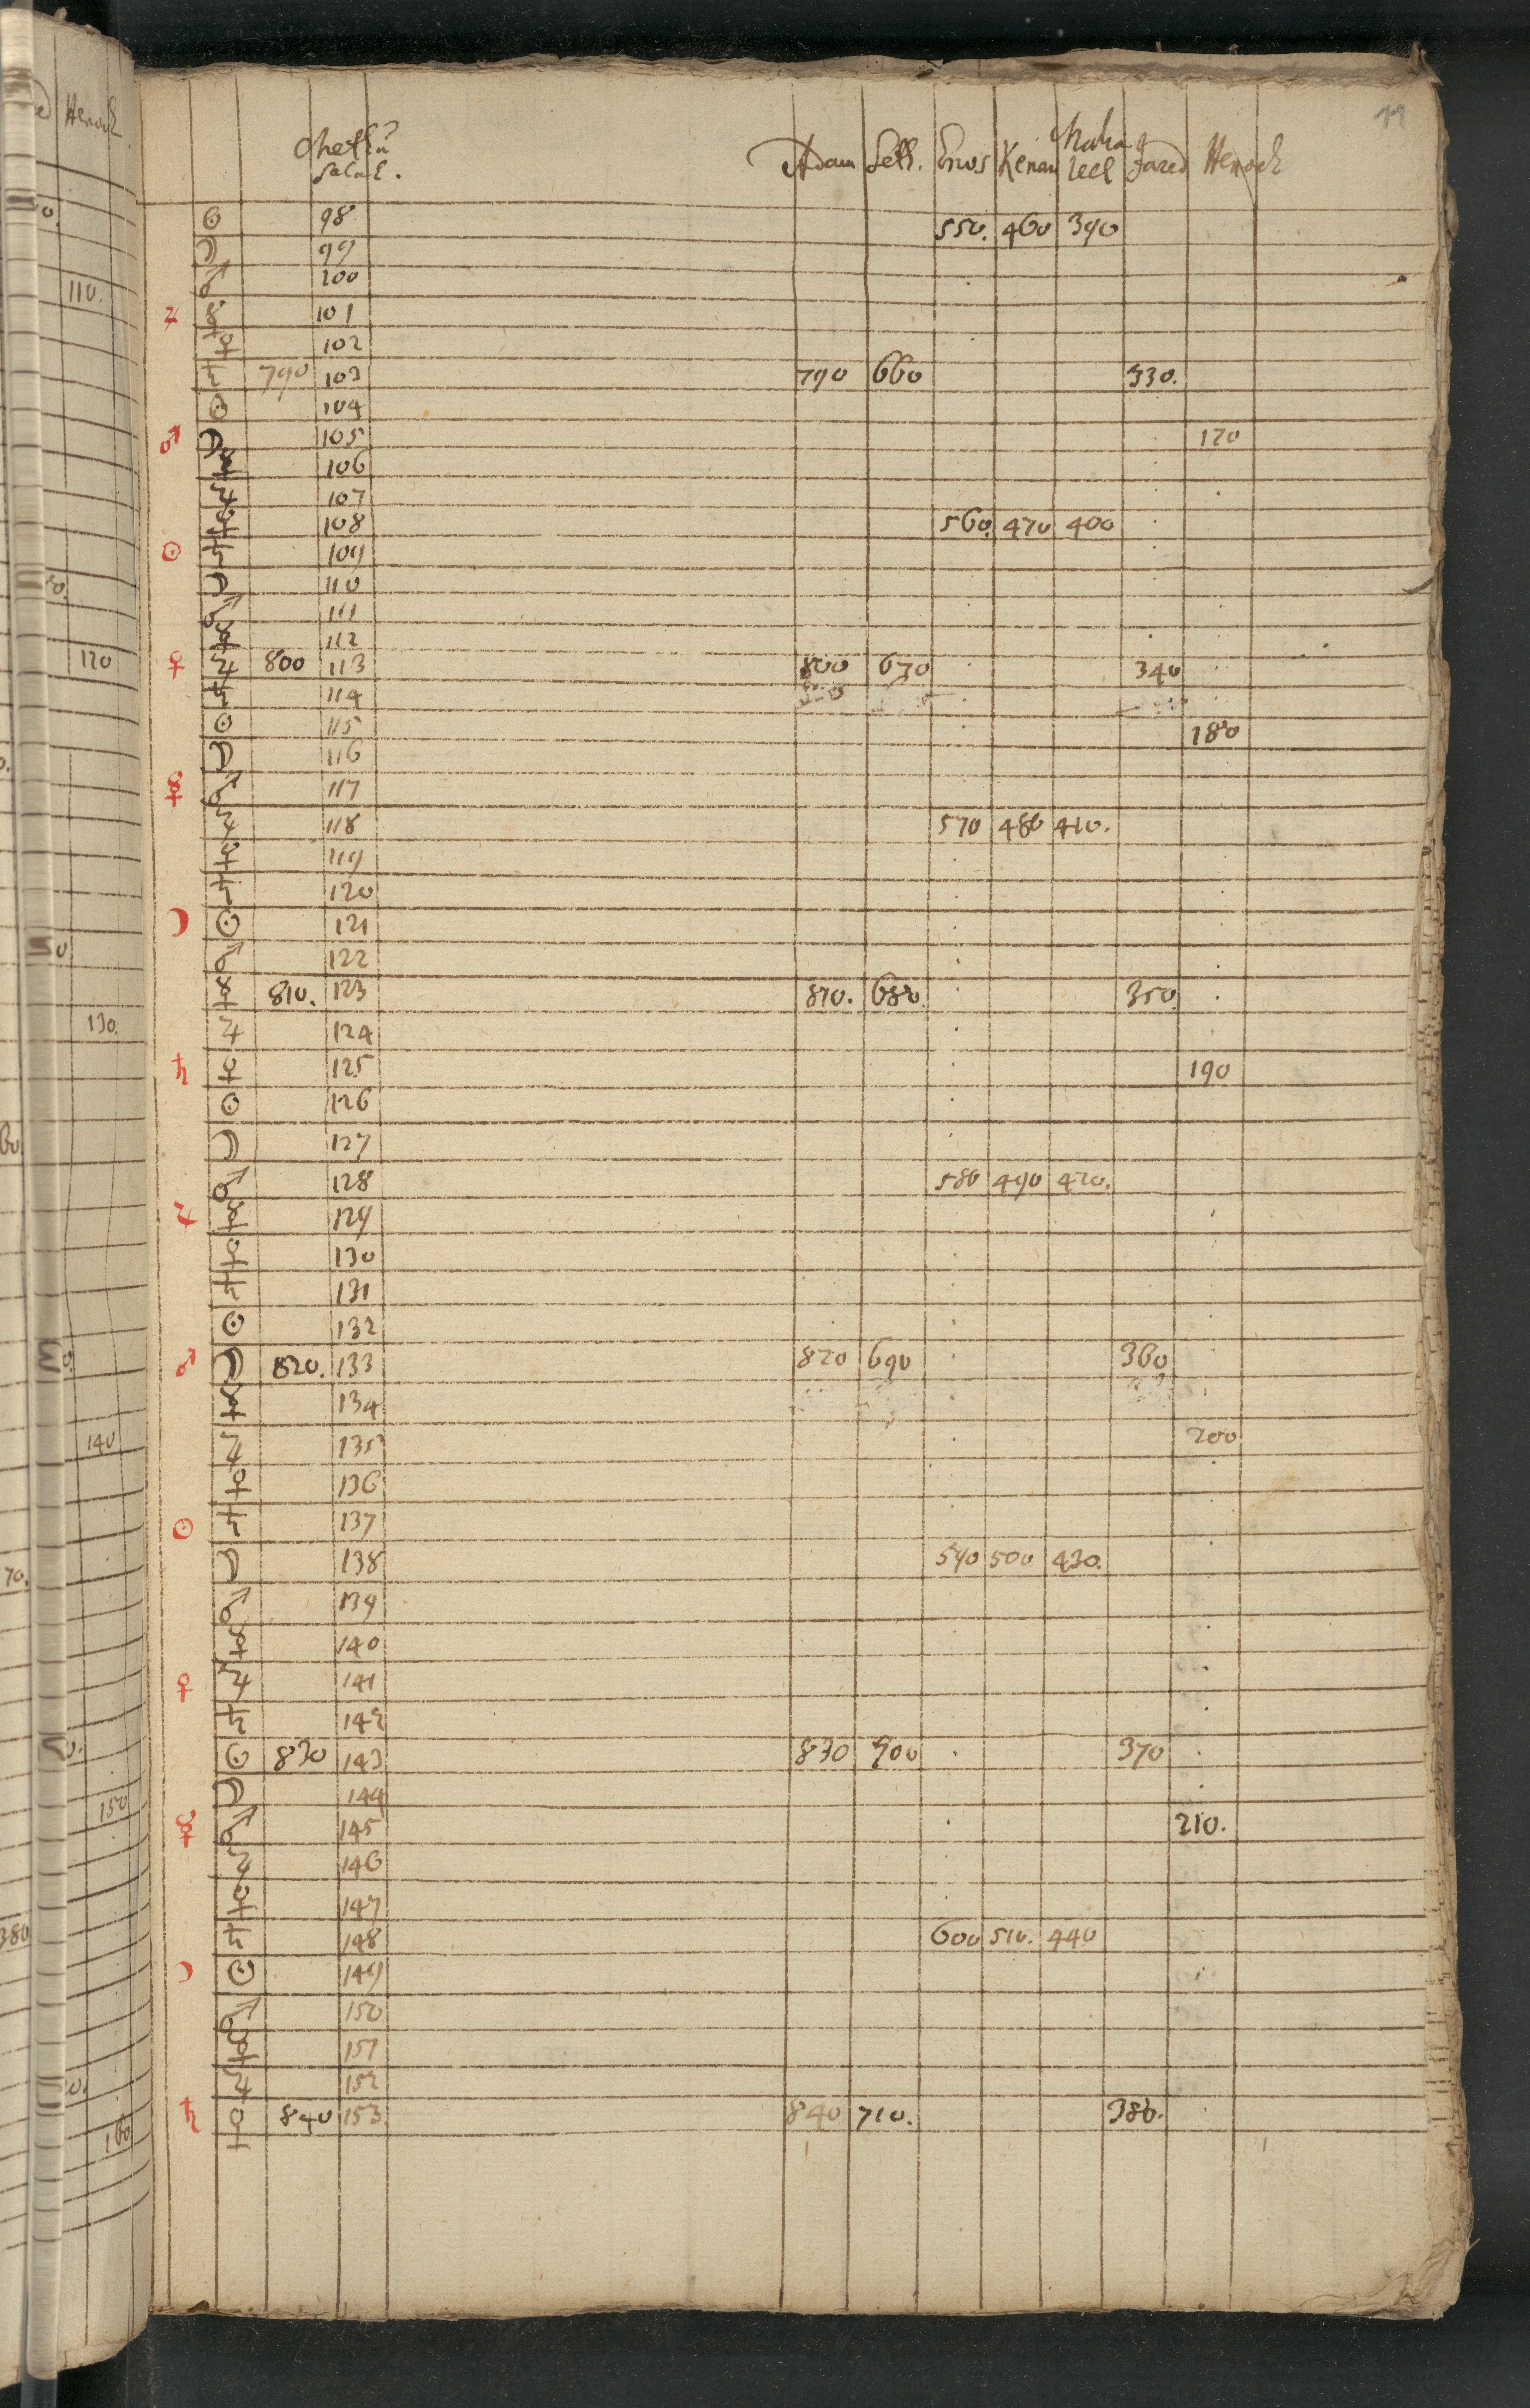 11
Salah.
Adam Seth. Enos Kenan Mahaleel Jared Henoch
☉ 98 550. 460 390
☽ 99
♂ 100
♃ ☿ 101
♀ 102
♄ 790 103 790 660 330.
☉ 104
♂ ☽ 105 170
☿ 106
♃ 107
♀ 108 560. 470 400
☉ ♄ 109
☽ 110
♂ 111
☿ 112
♀ ♃ 800 113 800 670 340
♄ 114
☉ 115 180
☽ 116
☿ ♂ 117
♃ 118 570 480 410.
♀ 119
♄ 120
☽ ☉ 121
♂ 122
☿ 810. 123 810. 680. 350
♃ 124
♄ ♀ 125 190
☉ 126
☽ 127
♂ 128 580 490 420.
♃ ☿ 129
♀ 130
♄ 131
☉ 132
♂ ☽ 820. 133 820 690 360
☿ 134
♃ 135 200
♀ 136
☉ ♄ 137
☽ 138 590 500 430.
♂ 139
☿ 140
♀ ♃ 141
♄ 142
☉ 830 143 830 700 370
☽ 144
☿ ♂ 145 210.
♃ 146
♀ 147
♄ 148 600 510. 440
☽ ☉ 149
♂ 150
☿ 151
♃ 152
♄ ♀ 840 153. 840 710. 380.
Henoch
110.
120
130.
140
150
160
70.
380